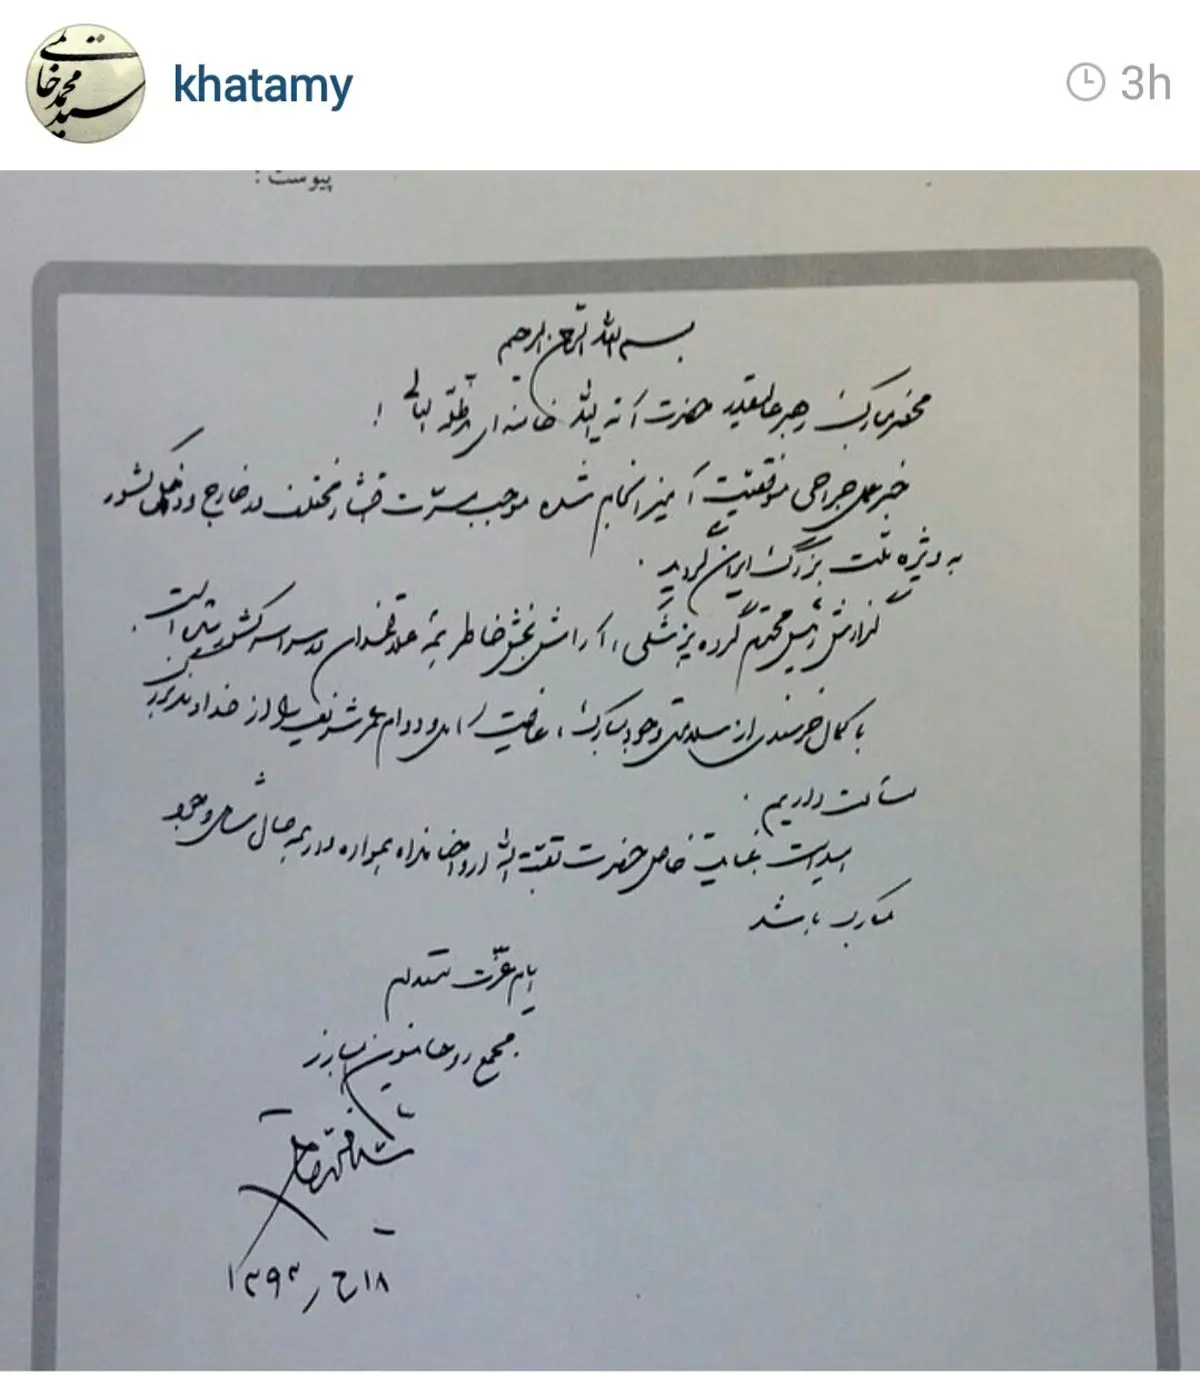 سید محمد خاتمی
khatamy
3h
پیوست :
بسم الله الرحمن الرحیم
محضر مبارک رهبر عالیقدر حضرت آیة الله خامنه ای مدظله العالی !
خبر عمل جراحی موفقیت آمیز انجام شده موجب مسرت اقشار مختلف در خارج و داخل کشور
به ویژه ملت بزرگ ایران گردید .
گزارش رئیس محترم گروه پزشکی ، آرامش بخش خاطر همه علاقمندان در سراسر کشور است .
با کمال خرسندی از سلامتی وجود مبارک ، عافیت کامل و دوام عمر شریف را از خداوند بزرگ
مسألت داریم .
امید است عنایت خاص حضرت بقیة الله ارواحنا فداه همواره در همه حال شامل وجود
مبارک باشد
ایام عزت مستدام
مجمع روحانیون مبارز
۱۸ ر ۱۳۹۳